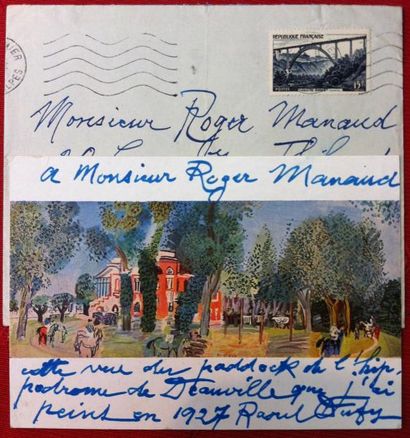 RÉPUBLIQUE FRANÇAISE
POSTES
15F
Monsieur Roger Manaud
à Monsieur Roger Manaud
cette vue du paddock de l'hip-
podrome de Deauville que j'ai
peint en 1927 Raoul Dufy